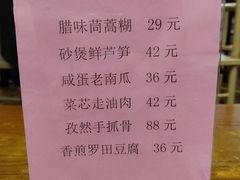 腊味茼蒿糊 29 元
砂煲鲜芦笋 42 元
咸蛋老南瓜 36 元
菜芯走油肉 42 元
孜然手抓骨 88 元
香煎罗田豆腐 36 元